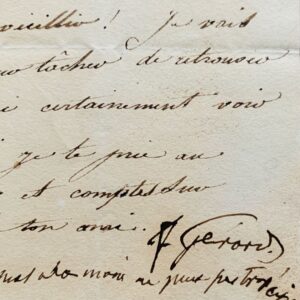 vieillir ! Je vais
tâcher de retrouver
certainement voir
je te prie au
et comptes sur
ton ami. F Gérard.
ne peux pas